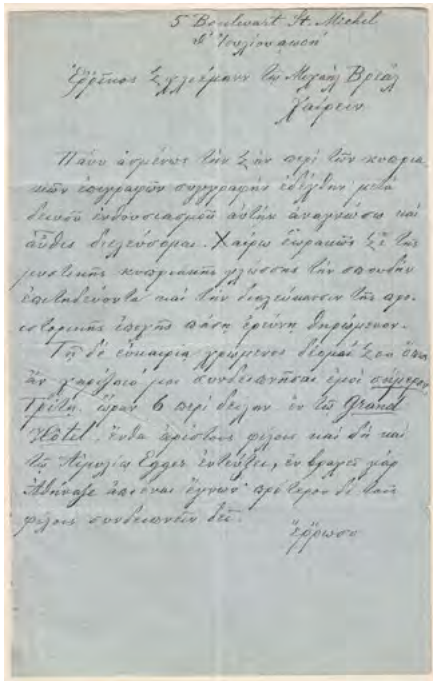 5 Boulevart St. Michel
δ' Ἰουλίου αωοή
Ἐῤῥῖκος Σχλιέμανν τῷ Μιχαὴλ Βρεὰλ
Χαίρειν
Πάνυ ἀσμένως τὴν Σὴν περὶ τῶν κυπρια
κῶν ἐπιγραφῶν συγγραφὴν ἐδέχθην· μετὰ
δεινοῦ ἐνθουσιασμοῦ αὐτὴν ἀναγνώσω καὶ
αὖθις διελεύσομαι. Χαίρω ἑωρακὼς Σε τῆς
μυστικῆς κυπριακῆς γλώσσης τὴν σπουδὴν
ἐπιτηδεύοντα καὶ τὴν διαλεύκανσιν τῆς προ-
ιστορικῆς ἐποχῆς πάσῃ ἐρεύνῃ θηρώμενον.
Τῇ δὲ εὐκαιρίᾳ χρώμενος δέομαί Σου ὅπως
ἂν χαρίσαιό μοι συνδειπνῆσαι ἐμοὶ σήμερον
Τρίτῃ, ὥραν 6 περὶ δείλην ἐν τῷ Grand
Hôtel, ἔνθα ἀρίστοις φίλοις καὶ δὴ καὶ
τῷ Αἰμιλίῳ Egger ἐντεύξει, ἐν βραχεῖ γὰρ
Ἀθήναζε ἀπιέναι ἔγνων· πρότερον δὲ τοῖς
φίλοις συνδειπνεῖν δεῖ.
Ἔῤῥωσο